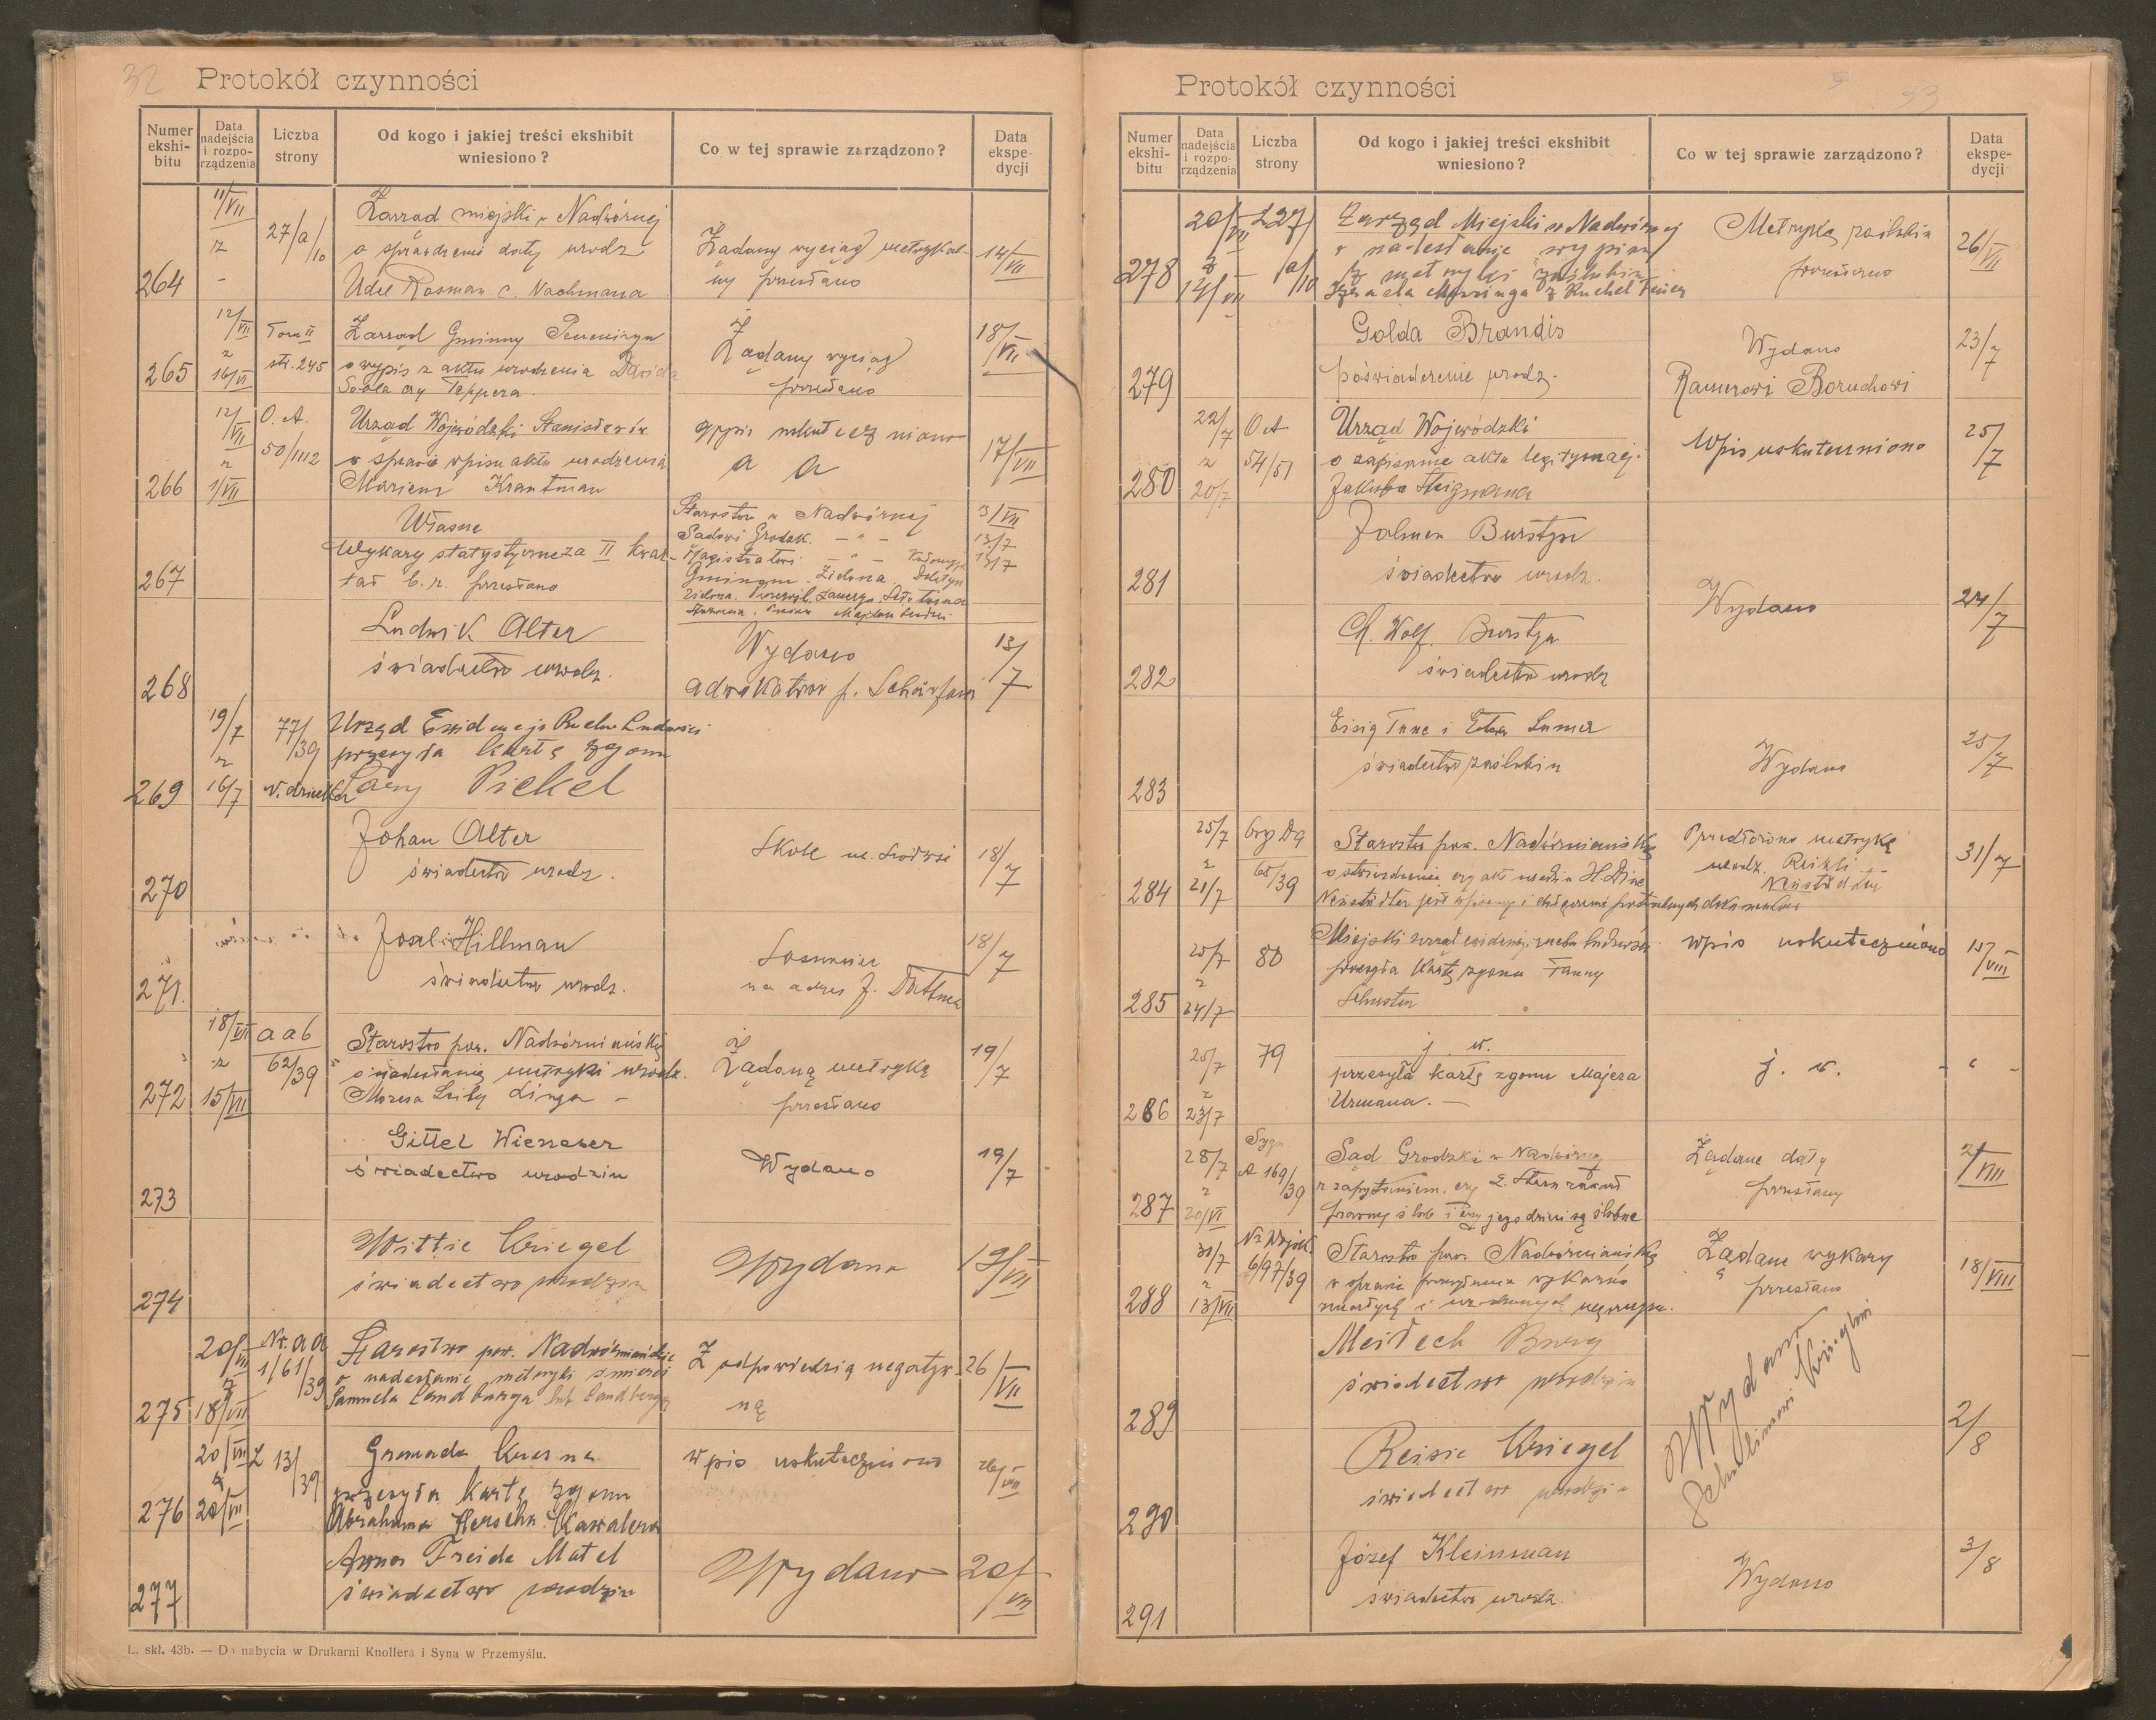 32
Protokół czynności
Numer ekshi-bitu
Data nadejścia i rozpo-rządzenia
Liczba strony
Od kogo i jakiej treści ekshibit wniesiono?
Co w tej sprawie zarządzono?
Data ekspe-dycji
264
11/VII
z
-
27/a/10
Zarząd miejski w Nadwórnej
o sprawdzenie daty urodz
Udel Rosman c. Nachmana
Żądany wyciąg metrykal-
ny przesłano
14/VII
265
12/VII
z
16/VI
Tom II
str. 245
Zarząd Gminny
o wypis z aktu urodzenia Dawida
czy Teppera.
Żądany wyciąg
przesłano
18/VII
266
12/VII
z
1/VII
O. A.
50/1112
Urząd Wojewódzki Stanisławów
w sprawie wpisu aktu urodzenia
Krautman
wpis uskuteczniono
a a
17/VII
267
Własne
Wykazy statystyczne za II kwar-
tał b. r. przesłano
Starostwu w Nadwórnej
Sądowi Grodzk. - " -
Magistratowi - " -
Zielona. Delatyn
3/VII
13/7
13/7
268
Ludwik Alter
świadectwo urodz.
Wydano
adwokatowi p. Schärfowi
13/7
269
19/7
z
16/7
77/39
Urząd Ewidencji Ruchu Ludności
przesyła kartę zgonu
Sary Pickel
270
Johan Alter
świadectwo urodz.
Skole
18/7
271.
Joel Hillman
świadectwo urodz.
Sosnowiec
na adres J.
18/7
272
18/VII
z
15/VII
a a 6
62/39
Starostwo pow. Nadwórniańskie
o nadesłanie metryki urodz.
Mozesa Linga -
Żądaną metrykę
przesłano
19/7
273
Gittel Wiesner
świadectwo urodzin
Wydano
19/7
274
Wittie Kriegel
świadectwo urodzin
Wydano
19/VII
275
20/VII
z
18/VII
Nr. aa
1/61/39
Starostwo pow. Nadwórniańskie
o nadesłanie metryki śmierci
Samuela Landburga lub Landberga
Z odpowiedzią negatyw-
ną
26/VII
276
20/VII
z
20/VII
L 13/39
Gromada
przesyła kartę zgonu
Abrahama Herscha Kawalera
wpis uskuteczniono
26/VII
277
Freide Matel
świadectwo urodzin
Wydano
20/VII
L. skł. 43b. — Do nabycia w Drukarni Knollera i Syna w Przemyślu.
33
Protokół czynności
Numer ekshi-bitu
Data nadejścia i rozpo-rządzenia
Liczba strony
Od kogo i jakiej treści ekshibit wniesiono?
Co w tej sprawie zarządzono?
Data ekspe-dycji
278
20/VII
z
12/VII
L 27/
a/10
Zarząd Miejski w Nadwórnej
o nadesłanie wypisu
z metryki zaślubin
Metrykę zaślubin
przesłano
26/VII
279
Golda Brandis
poświadczenie urodz.
Wydano
Ramerowi Boruchowi
23/7
280
22/7
z
20/7
O A
54/51
Urząd Wojewódzki
o zapisanie aktu legitymacj.
Jakuba Steigmana
Wpis uskuteczniono
25/7
281
Zalmen Burstyn
świadectwo urodz.
282
Ch. Wolf. Burstyn
świadectwo urodz
Wydano
24/7
283
świadectwo zaślubin
Wydano
25/7
284
25/7
z
21/7
68/39
Starostwo pow. Nadwórniańskie
o stwierdzenie czy akt urodzin H. Dine
Neustädter jest
Przedłożono metrykę
urodz.
Neustädter
31/7
285
25/7
z
24/7
80
Miejski urząd ewidencji ruchu ludności
przesyła kartę zgonu Fanny
Schuster
wpis uskuteczniono
17/VIII
286
25/7
z
23/7
79
j. w.
przesyła kartę zgonu Majera
Urmana. -
j. w.
- " -
287
28/7
z
20/VI
Sygn
A 169/39
Sąd Grodzki w Nadwórnej
z zapytaniem, czy L. Stern zawarł
prawny ślub i czy jego dzieci są ślubne
Żądane daty
przesłany
2/VIII
288
31/7
z
13/VII
Nr. Wojsk.
6/97/39
Starostwo pow. Nadwórniańskie
w sprawie przesyłania wykazów
zmarłych i urodzonych mężczyzn.
Żądane wykazy
przesłano
18/VIII
289
Meilech Burg
świadectwo urodzin
Wydano
290
Reisie Kriegel
świadectwo urodzin
2/8
291
Józef Kleinman
świadectwo urodz.
Wydano
3/8